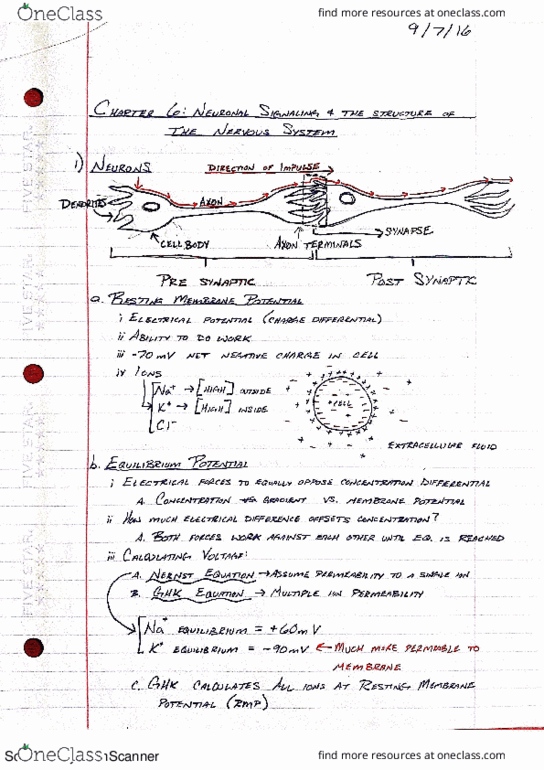 OneClass
find more resources at oneclass.com
9/7/16
CHAPTER 6: NEURONAL SIGNALING & THE STRUCTURE OF
THE NERVOUS SYSTEM
1) NEURONS
DIRECTION OF IMPULSE
DENDRITES
AXON
CELL BODY
AXON TERMINALS
SYNAPSE
PRE SYNAPTIC
POST SYNAPTC
a. RESTING MEMBRANE POTENTIAL
i ELECTRICAL POTENTIAL (CHARGE DIFFERENTIAL)
ii ABILITY TO DO WORK
iii -70 mV NET NEGATIVE CHARGE IN CELL
iv IONS
Na+ → [HIGH] OUTSIDE
K+ → [HIGH] INSIDE
Cl-
CELL
EXTRACELLULAR FLUID
b. EQUILIBRIUM POTENTIAL
i ELECTRICAL FORCES TO EQUALLY OPPOSE CONCENTRATION DIFFERENTIAL
A. CONCENTRATION GRADIENT VS. MEMBRANE POTENTIAL
ii HOW MUCH ELECTRICAL DIFFERENCE OFFSETS CONCENTRATION?
A. BOTH FORCES WORK AGAINST EACH OTHER UNTIL EQ. IS REACHED
iii CALCULATING VOLTAGE:
A. NERNST EQUATION → ASSUME PERMEABILITY TO A SINGLE ION
B. GHK EQUATION → MULTIPLE ION PERMEABILITY
Na+ EQUILIBRIUM = +60mV
K+ EQUILIBRIUM = -90mV ← MUCH MORE PERMEABLE TO
MEMBRANE
C. GHK CALCULATES ALL IONS AT RESTING MEMBRANE
POTENTIAL (RMP)
FIVE STAR.
FIVE STAR.
FIVE STAR.
FIVE STAR.
OneClass
Scanner
find more resources at oneclass.com